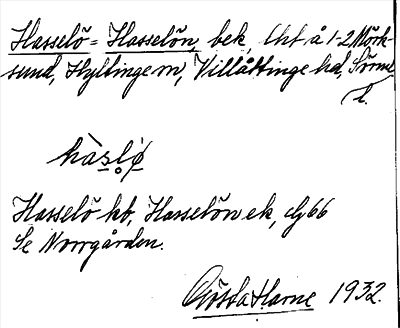 Hasselö = Hasselön, bek, Cht å 1-2 Mörk-
sund, Hyltinge sn, Villåttinge hd, Srml.
l.
hàslǿ
Hasselö hb, Hasselön ek, dj 66
Se Norrgården.
Gösta Harne 1932.